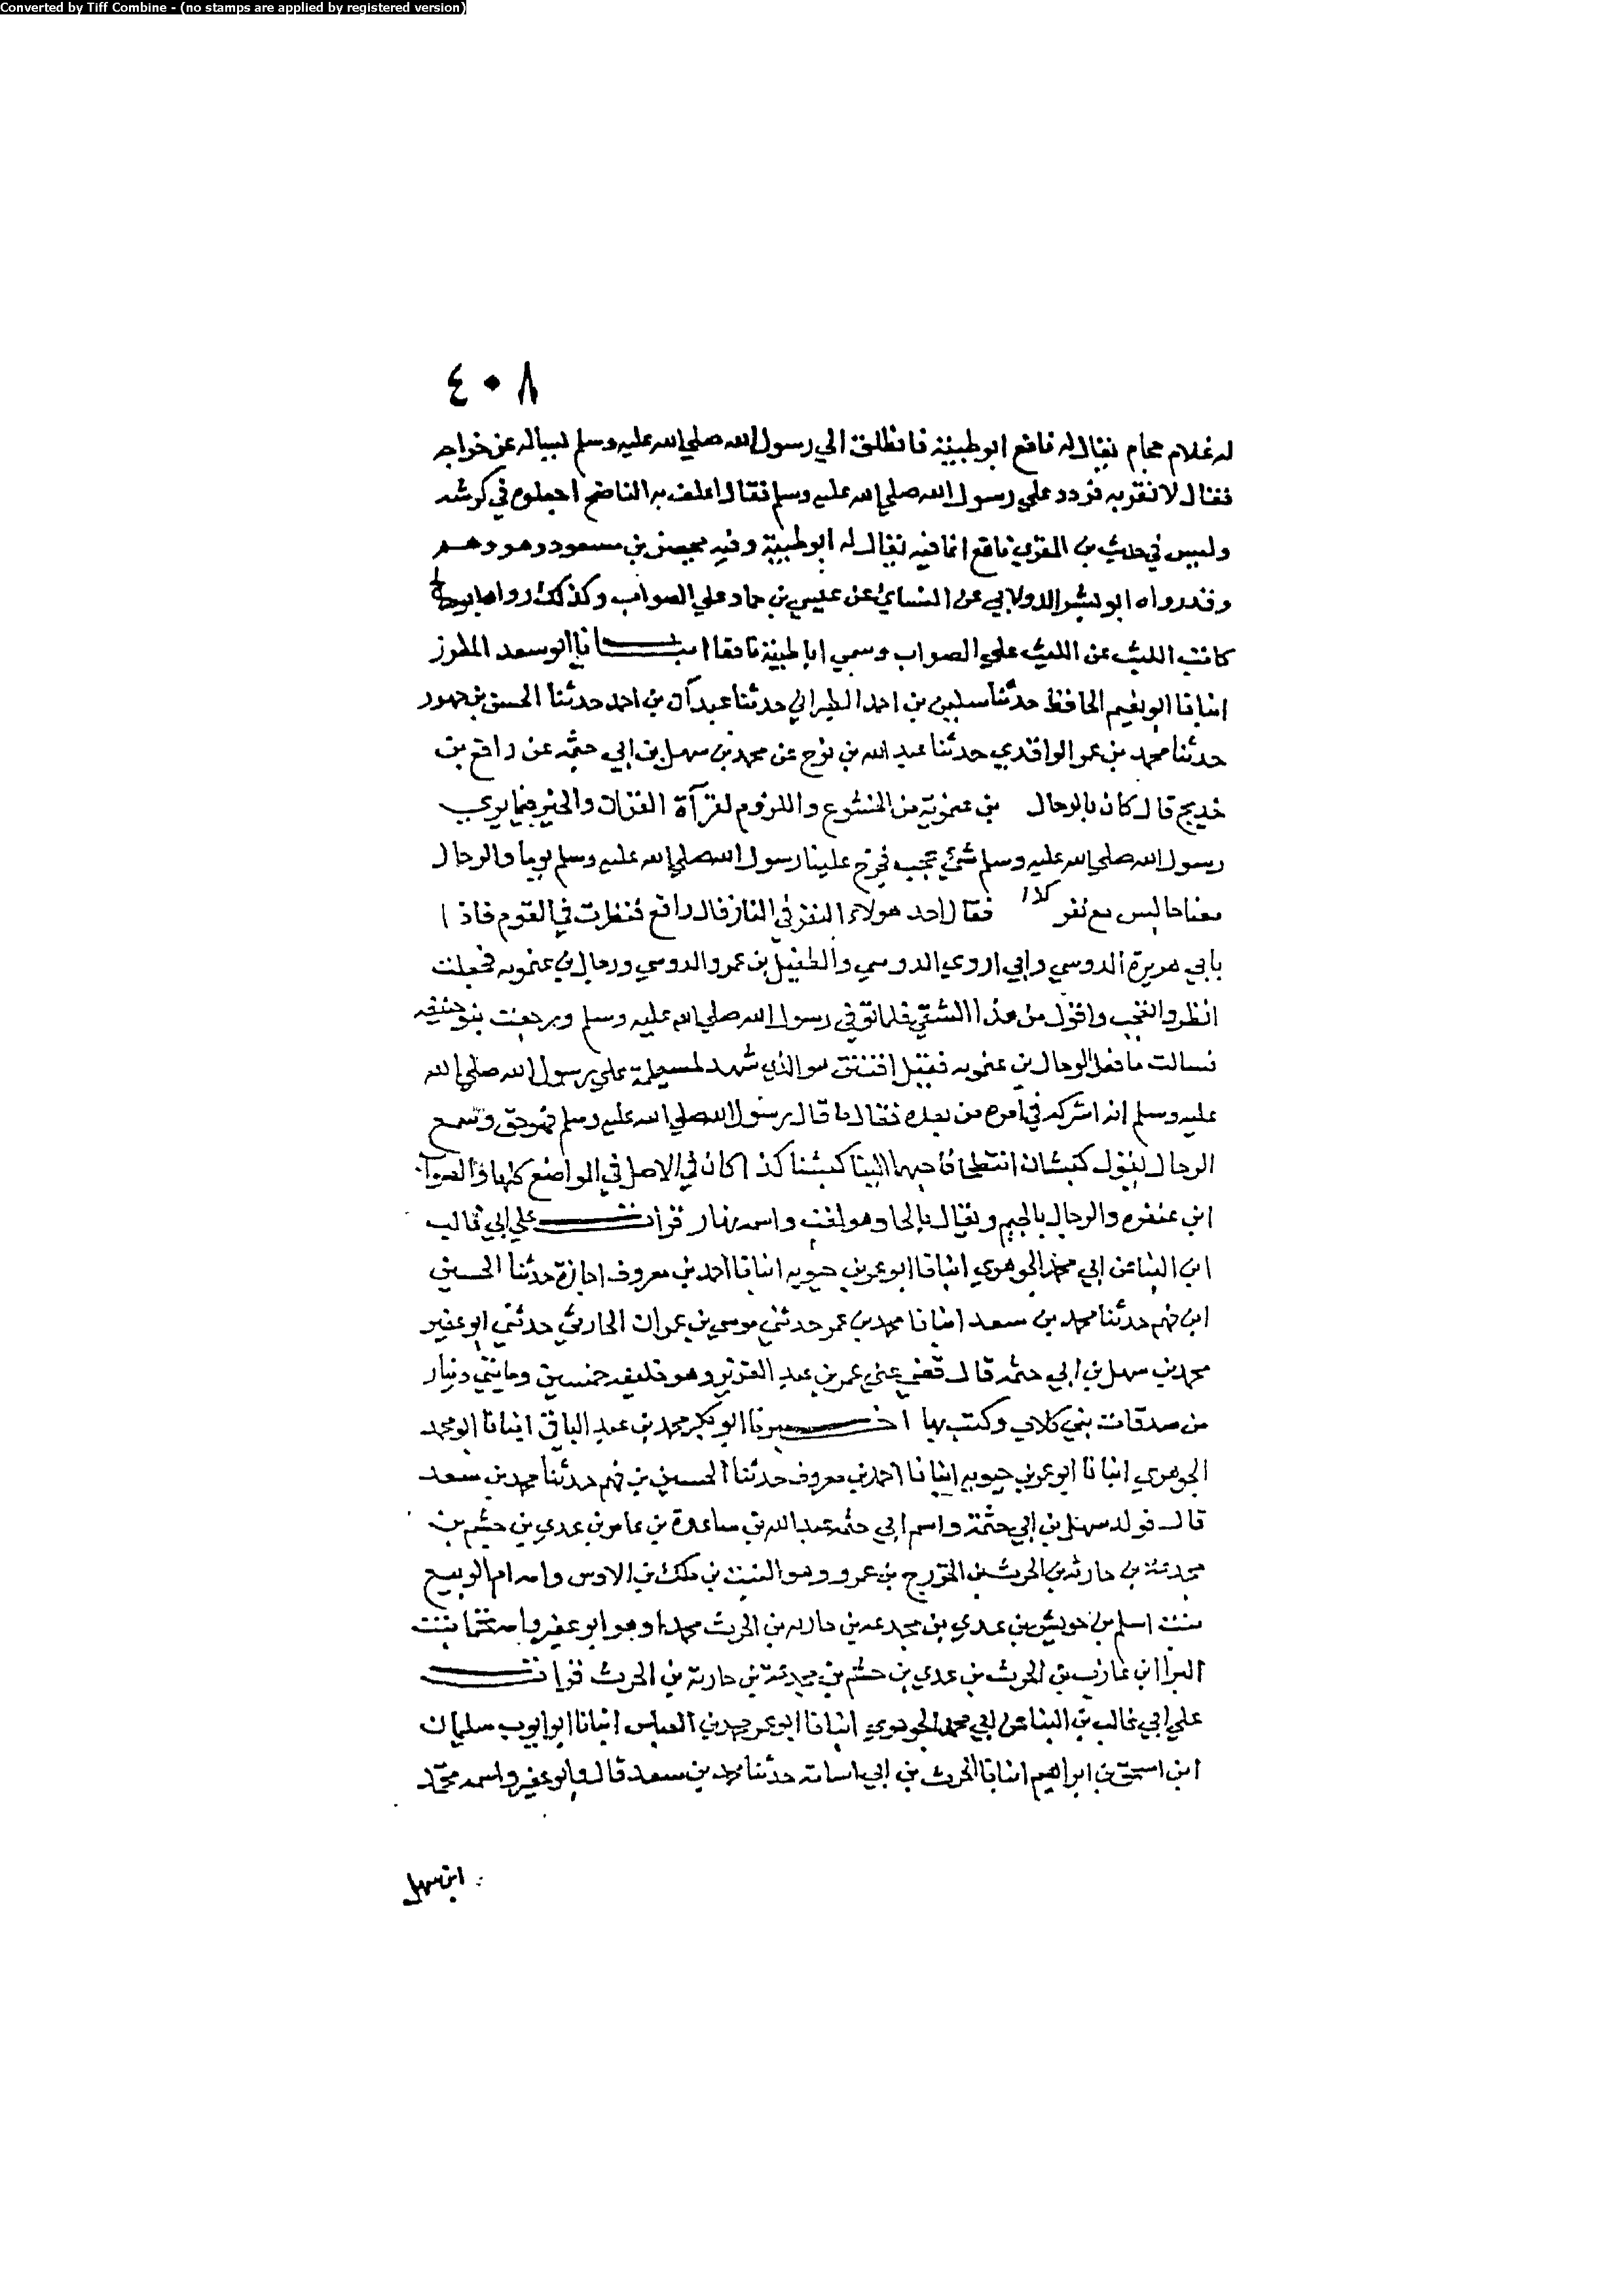 Converted by Tiff Combine - (no stamps are applied by registered version)
٤٠٨
له غلام حجام يقال له نافع ابو طيبة فانطلق الي رسول الله صلي الله عليه وسلم ليساله عن خراجه
فقال لا تقربه فردد علي رسول الله صلي الله عليه وسلم فقال اعلف به الناضح اجعلوه في كرشه
وليس في حديث بن المقري نافع انما فيه يقال له ابو طيبة وفيه محيصن بن مسعود وهو وهم
وقد رواه ابو بشر الدولابي عن النسائي عن عيسي بن حماد علي الصواب وكذلك رواه ابو صالح
كاتب الليث عن الليث علي الصواب وسمي ابا طيبة نافعا انبانا ابو سعد المطرز
انبانا ابو نعيم الحافظ حدثنا سليمن بن احمد الطبراني حدثنا عبدان بن احمد حدثنا الحسن بن جمهور
حدثنا محمد بن عمر الواقدي حدثنا عبد الله بن نوح عن محمد بن سهل بن ابي حثمه عن رافع بن
خديج قال كان بالرجال بن عنمويه من الخشوع واللزوم لقرآة القران والخير فيما يري
رسول الله صلي الله عليه وسلم شيئ عجب فخرج علينا رسول الله صلي الله عليه وسلم يوما والرجال
معنا جالس مع نفر كذا فقال احد هولاء النفر في النار قال رافع فنظرت في القوم فاذا
بابي هريرة الدوسي وابي اروي الدوسي والطفيل بن عمرو الدوسي ورجال بن عنمويه فجعلت
انظر واتعجب واقول من هذا الشقي فلما توفي رسول الله صلي الله عليه وسلم ورجعت بنو حنيفه
فسالت ما فعل الرجال بن عنمويه فقيل افتتن هو الذي شهد لمسيلمة علي رسول الله صلي الله
عليه وسلم انه اشركه في امره من بعده فقال ما قال رسول الله صلي الله عليه وسلم فهو حق وسمع
الرجال يقول كبشان انتطحا فاحبهما الينا كبشنا كذا كان في الاصل في المواضع كلها والصواب
ابن عنفوه والرجال بالجيم ويقال بالحا وهو لقب واسمه نهار قرات علي ابي غالب
ابن البنا عن ابي محمد الجوهري انبانا ابو عمر بن حيويه انبانا احمد بن معروف اجازة حدثنا الحسين
ابن فهم حدثنا محمد بن سعد انبانا محمد بن عمر حدثني موسي بن عمران الحارثي حدثني ابو عفير
محمد بن سهل بن ابي حثمه قال قضي عني عمر بن عبد العزيز وهو خليفه خمسين ومايتي دينار
من صدقات بني كلاب وكتب بها اخبرنا ابو بكر محمد بن عبد الباقي انبانا ابو محمد
الجوهري انبانا ابو عمر بن حيويه انبانا احمد بن معروف حدثنا الحسين بن فهم حدثنا محمد بن سعد
قال فولد سهل بن ابي حثمة واسم ابي حثمه عبد الله بن ساعدة بن عامر بن عدي بن جشم بن
مجدعة بن حارثه بن الحرث بن الخزرج بن عمرو وهو النبيت بن ملك بن الاوس وامه ام الربيع
بنت اسلم بن حريش بن عدي بن مجدعه بن حارثه بن الحرث محمدا وهو ابو عفير وامه تحيا بنت
البرا ابن عازب بن الحرث بن عدي بن جشم بن مجدعة بن حارثة بن الحرث قرات
علي ابي غالب بن البنا عن ابي محمد الجوهري انبانا ابو عمر محمد بن العباس انبانا ابو ايوب سليمان
ابن اسحق بن ابراهيم انبانا الحرث بن ابي اسامة حدثنا محمد بن سعد قال وابو عفير واسمه محمد
ابن سهل